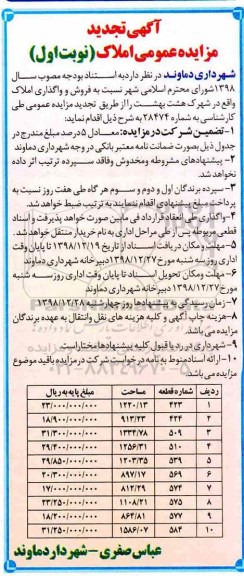 آگهی تجدید
مزایده عمومی املاک (نوبت اول)
شهرداری دماوند در نظر دارد به استناد بودجه مصوب سال
۱۳۹۸ شورای محترم اسلامی شهر نسبت به فروش و واگذاری املاک
واقع در شهرک هشت بهشت را از طریق تجدید مزایده عمومی طی
کارشناسی به شماره ۲۸۴۷۴ به شرح ذیل اقدام نماید:
۱- تضمین شرکت در مزایده: معادل ۵ درصد مبلغ مندرج در
جدول ذیل بصورت ضمانت نامه معتبر بانکی در وجه شهرداری دماوند
۲- پیشنهادهای مشروط و مخدوش و فاقد سپرده ترتیب اثر داده
نخواهد شد.
۳- سپرده برندگان اول و دوم و سوم هر گاه طی هفت روز نسبت به
پرداخت مبلغ پیشنهادی اقدام ننمایند به ترتیب ضبط خواهد شد.
۴- واگذاری طی انعقاد قرارداد فی مابین صورت خواهد پذیرفت و اسناد
قطعی مربوطه پس از طی مراحل اداری به نام خریدار منتقل خواهد شد.
۵- مهلت و مکان دریافت اسناد از تاریخ ۱۳۹۸/۱۲/۱۹ تا پایان وقت
اداری روز سه شنبه مورخ ۱۳۹۸/۱۲/۲۷ دبیرخانه شهرداری دماوند
۶- مهلت و مکان تحویل اسناد تا پایان وقت اداری روز سه شنبه
مورخ ۱۳۹۸/۱۲/۲۷ دبیرخانه شهرداری دماوند
۷- زمان رسیدگی به پیشنهادها روز چهارشنبه ۱۳۹۸/۱۲/۲۸
۸- هزینه چاپ آگهی و کلیه هزینه های نقل و انتقال به عهده برندگان
مزایده می باشد.
۹- شهرداری در رد یا قبول کلیه پیشنهادها مختار است.
۱۰- ارائه اسناد منوط به نامه درخواست شرکت در مزایده با قید موضوع
مزایده می باشد.
ردیف شماره قطعه مساحت مبلغ پایه به ریال
۱ ۴۲۳ ۱۲۲۰/۱۳ ۲۳/۰۰۰/۰۰۰
۲ ۴۲۴ ۹۱۳/۲۳ ۱۸/۹۰۰/۰۰۰
۳ ۵۰۹ ۲۳۳۴/۷۸ ۳۱/۳۰۰/۰۰۰
۴ ۵۱۰ ۱۲۵۶/۳۱ ۲۹/۴۰۰/۰۰۰
۵ ۵۳۹ ۱۲۰۳/۳۵ ۲۹/۸۵۰/۰۰۰
۶ ۵۶۹ ۸۹۷/۱۷ ۲۰/۳۰۰/۰۰۰
۷ ۵۷۴ ۸۱۲/۲۹ ۱۷/۰۰۰/۰۰۰
۸ ۵۷۵ ۱۱۰۸/۲۱ ۲۳/۲۵۰/۰۰۰
۹ ۵۷۷ ۸۶۴/۸۱ ۱۸/۲۰۰/۰۰۰
۱۰ ۵۸۴ ۱۵۸۶/۰۷ ۳۱/۲۵۰/۰۰۰
عباس صفری - شهردار دماوند